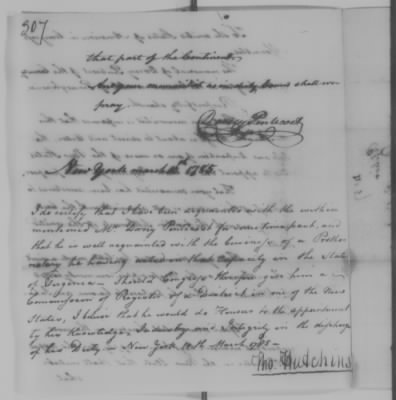 307
that part of the Continent,
And your memorialist as in duty bound shall ever
pray
Dorsey Pentecost
New York March 1785.
I do certify that I have been acquainted with the within
mentioned Mr Dorsey Pentecost for some time past, and
that he is well acquainted with the business of a Prothon
notary he having acted in that capacity in the State
of Virginia — Should Congress therefore give him a
Commission of Register of a District in one of the New
States, I know that he would do Honour to the appointment
by his Knowledge, Industry and Integrity in the discharge
of his Duty — New York 10th March 1785 —
Tho. Hutchins